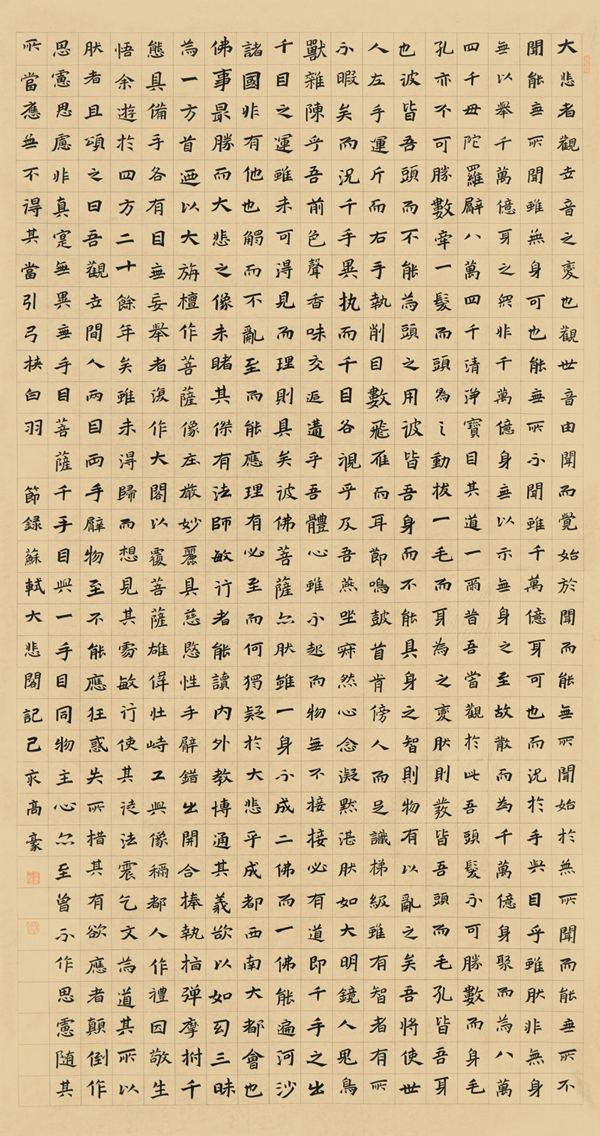 大悲者觀世音之變也觀世音由聞而覺始於聞而能無所聞始於無所聞而能無所不
聞能無所聞雖無身可也能無所不聞雖千萬億身可也而況於手與目乎雖然非無身
無以舉千萬億身之眾非千萬億身無以示無身之至故散而為千萬億身聚而為八萬
四千母陀羅臂八萬四千清淨寶目其道一爾昔吾嘗觀於此吾頭髮不可勝數而身毛
孔亦不可勝數牽一髮而頭為之動拔一毛而身為之變然則髮皆吾頭而毛孔皆吾身
也彼皆吾頭而不能為頭之用彼皆吾身而不能具身之智則物有以亂之矣吾將使世
人左手運斤而右手執削目數飛雁而耳節鳴鼓首肯傍人而足識梯級雖有智者有所
不暇矣而況千手異執而千目各視乎及吾燕坐寂然心念凝默湛然如大明鏡人鬼鳥
獸雜陳乎吾前色聲香味交逅遘乎吾體心雖不起而物無不接接必有道即千手之出
千目之運雖未可得見而理則具矣彼佛菩薩亦然雖一身不成二佛而一佛能遍河沙
諸國非有他也觸而不亂至而能應理有必至而何獨疑於大悲乎成都西南大都會也
佛事最勝而大悲之像未睹其傑有法師敏行者能讀內外教博通其義欲以如幻三昧
為一方首迺以大旃檀作菩薩像莊嚴妙麗具慈愍性手臂錯出開合捧執指彈摩拊千
態具備手各有目無妄舉者復作大閣以覆菩薩雄偉壯峙工與像稱都人作禮因敬生
悟余遊於四方二十餘年矣雖未得歸而想見其處敏行使其徒法震乞文為道其所以
然者且頌之曰吾觀世間人兩目兩手臂物至不能應狂惑失所措其有欲應者顛倒作
思慮思慮非真寔無異無手目菩薩千手目與一手目同物主心亦至曾不作思慮隨其
所當應無不得其當引弓挾白羽 節錄蘇軾大悲閣記己亥高豪